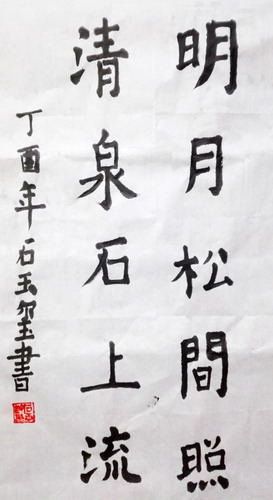 明月松間照
清泉石上流
丁酉年石玉玺書